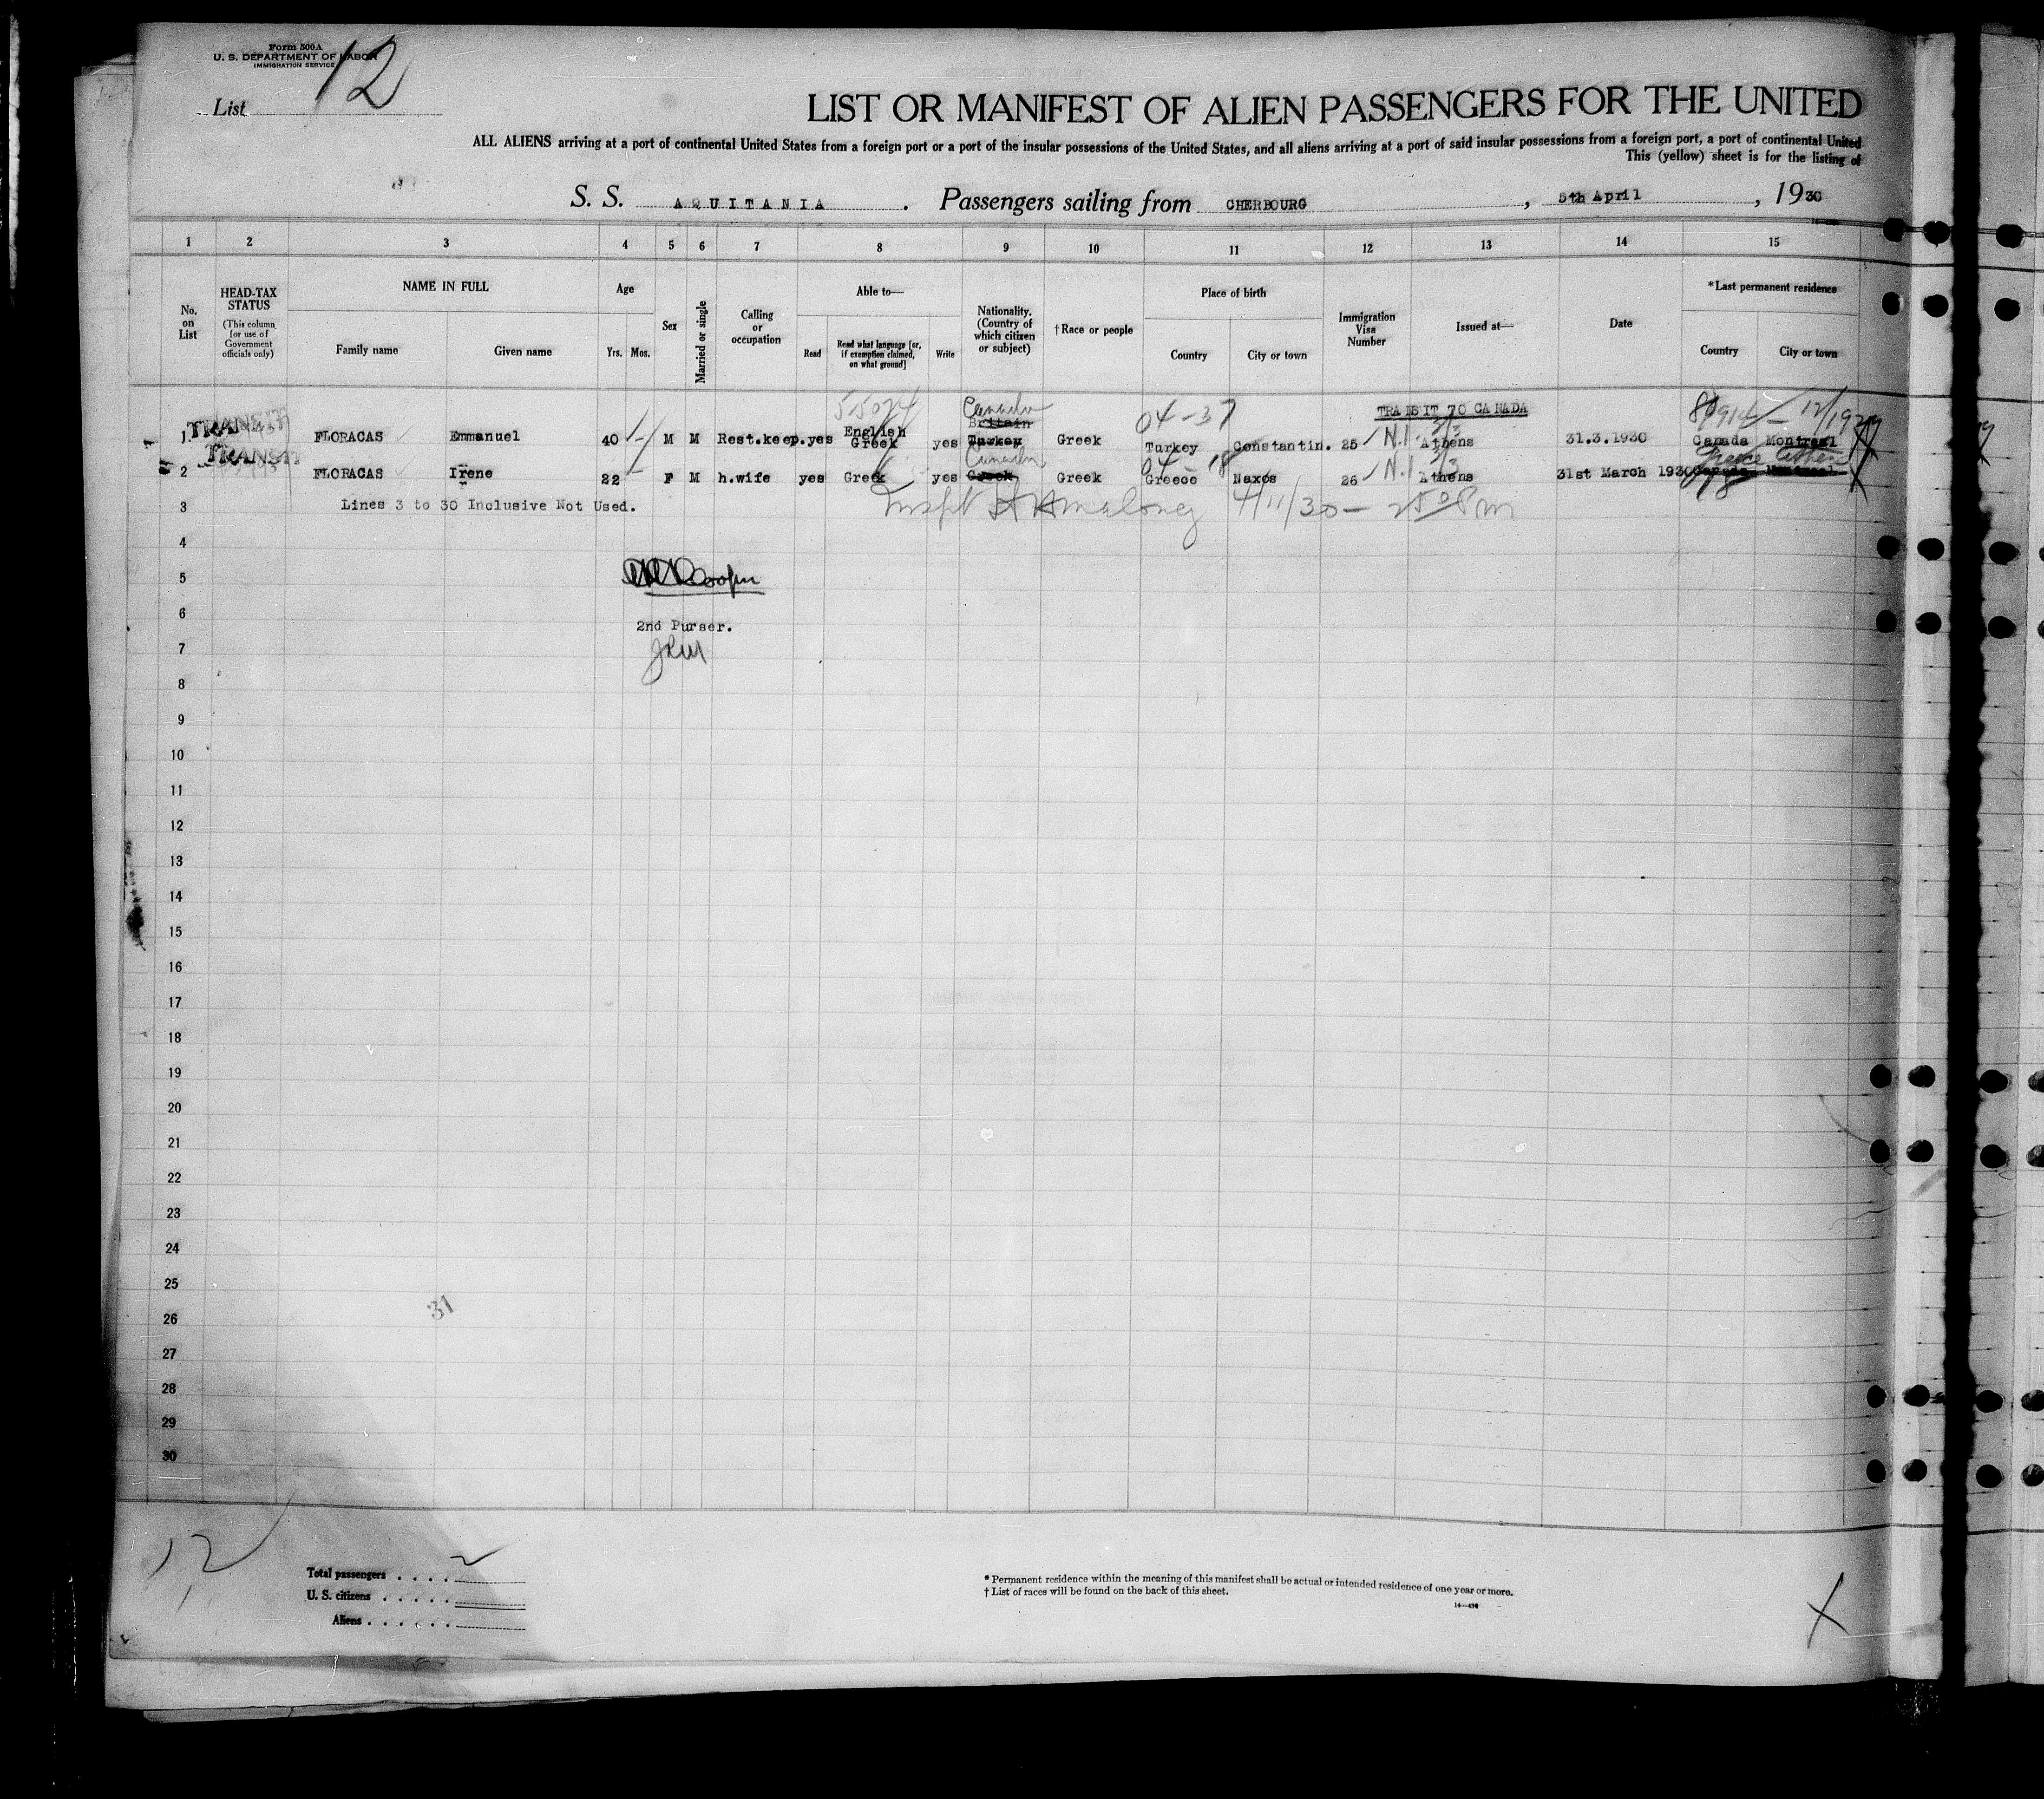 Form 500A
U. S. DEPARTMENT OF LABOR
IMMIGRATION SERVICE
List 12
LIST OR MANIFEST OF ALIEN PASSENGERS FOR THE UNITED
ALL ALIENS arriving at a port of continental United States from a foreign port or a port of the insular possessions of the United States, and all aliens arriving at a port of said insular possessions from a foreign port, a port of continental United
This (yellow) sheet is for the listing of
S. S. AQUITANIA . Passengers sailing from CHERBOURG , 5th April , 1930
1 2 3 4 5 6 7 8 9 10 11 12 13 14 15
No. on List
HEAD-TAX STATUS
(This column for use of Government officials only)
NAME IN FULL
Family name Given name
Age
Yrs. Mos.
Sex
Married or single
Calling or occupation
Able to—
Read
Read what language [or, if exemption claimed, on what ground]
Write
Nationality. (Country of which citizen or subject)
†Race or people
Place of birth
Country City or town
Immigration Visa Number
Issued at—
Date
*Last permanent residence
Country City or town
Canada
Britain
04-37
TRANSIT TO CANADA
TRANSIT
1 FLORACAS Emmanuel 40 M M Rest.keep. yes English Greek yes Turkey Greek Turkey Constantin. 25 N.I. 3/3 Athens 31.3.1930 Canada Montreal
TRANSIT
Canada
Greece Athens
2 FLORACAS Irene 22 F M h.wife yes Greek yes Greek Greek Greece Naxos 26 N.I. 3/3 Athens 31st March 1930 Canada Montreal
3 Lines 3 to 30 Inclusive Not Used.
4/11/30
4
5
Cooper
6
2nd Purser.
7
8
9
10
11
12
13
14
15
16
17
18
19
20
21
22
23
24
25
31
26
27
28
29
30
12
Total passengers . . . . . 2
U. S. citizens . . . . .
Aliens . . . . . .
* Permanent residence within the meaning of this manifest shall be actual or intended residence of one year or more.
† List of races will be found on the back of this sheet.
X